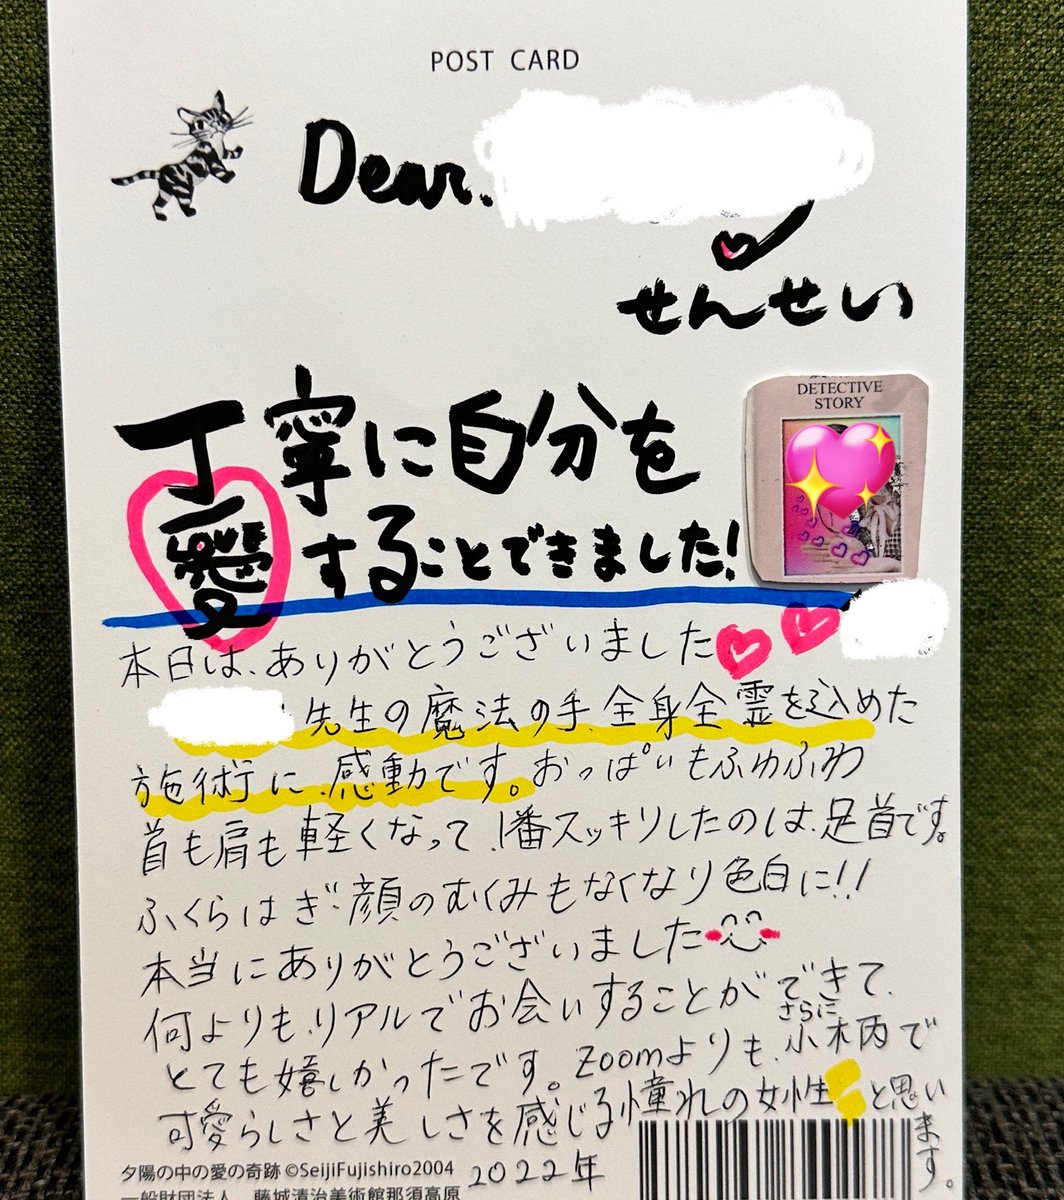 POST CARD
Dear.
せんせい
丁寧に自分を
愛することできました!
DETECTIVE
STORY
本日は、ありがとうございました
先生の魔法の手、全身全霊を込めた
施術に、感動です。おっぱいもふゎふゎ
首も肩も軽くなって、1番スッキリしたのは、足首です。
ふくらはぎ・顔のむくみもなくなり色白に!!
本当にありがとうございました
何よりも、リアルでお会いすることができて、
とても嬉しかったです。Zoomよりも、さらに小柄で
可愛らしさと美しさを感じる憧れの女性と思います。
2022年
夕陽の中の愛の奇跡 ©SeijiFujishiro2004
一般財団法人 藤城清治美術館那須高原